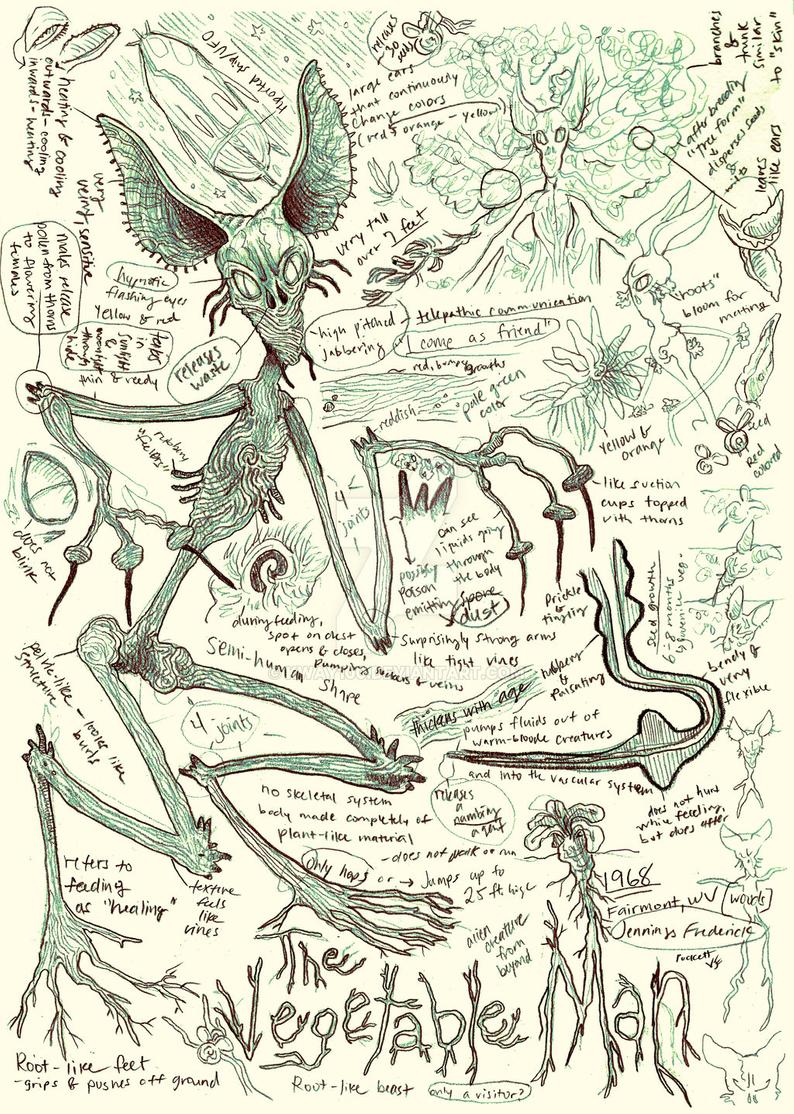 heating & cooling
outwards - cooling
inwards - heating
Reported ship/UFO
releases
30
seeds
large ears
that continuously
change colors
(red & orange - yellow)
branches
&
trunk
similar
to "skin"
after breeding
"tree form"
& disperses seeds
&
leaves
like ears
very
veiny
sensitive
males release
pollen from thorns
to flowering
females
very tall
over 7 feet
hypnotic
flashing eyes
Yellow & red
takes
in
sunlight
&
through
hide
thin & reedy
releases
waste
high pitched
Jabbering
telepathic communication
"I come as friend"
"roots"
bloom for
mating
red, bumpy growths
reddish
pale green
color
yellow &
orange
seed
Red
colored
does not
blink
4
joints
like suction
cups topped
with thorns
can see
liquids going
through
the body
possibly
poison
emitting spore
dust
during feeding,
spot on chest
opens & closes
Pumping
& veins
Semi-human
shape
Surprisingly strong arms
like tight vines
Prickle
&
tingling
rubbery
&
Pulsating
seed growth
6-8 months
juvenile veg.
bendy &
very
flexible
pelvic-like
structure
- looks like
burls
4 joints
thickens with age
pumps fluids out of
warm-bloode creatures
and into the vascular system
releases
a
numbing
agent
does not hurt
while feeding,
but does after
no skeletal system
body made completely of
plant-like material
Only hops
- does not walk or run
or → Jumps up to
25 ft high
refers to
feeding
as "healing"
texture
feels
like
vines
alien creature
from
beyond
1968
Fairmont, WV [woods]
Jennings Frederick
The
Vegetable Man
Root-like feet
- grips & pushes off ground
Root-like beast
only a visitor?